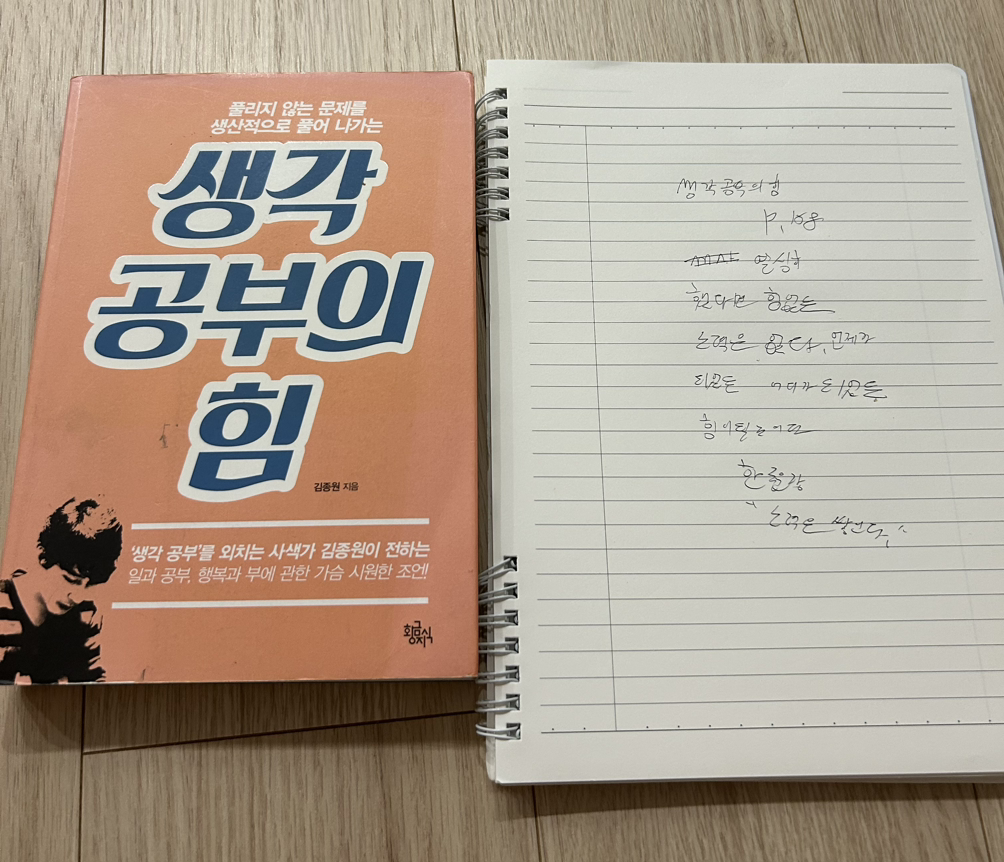 풀리지 않는 문제를
생산적으로 풀어 나가는
생각
공부의
힘
김종원 지음
'생각 공부'를 외치는 사색가 김종원이 전하는
일과 공부, 행복과 부에 관한 가슴 시원한 조언!
황금지식
생각 공부의 힘
열심히
했다면 힘없는
노력은 없다. 언제가
되었든 어디가 되었든
힘이
한 줄요약
노력은 쌓인다.